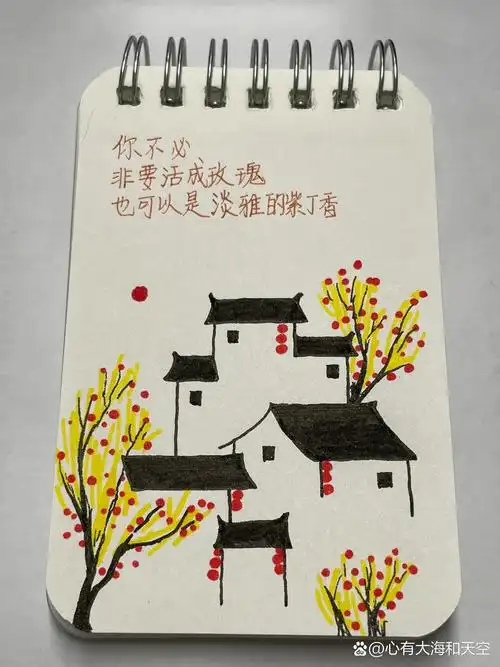 你不必
非要活成玫瑰
也可以是淡雅的紫丁香
@心有大海和天空